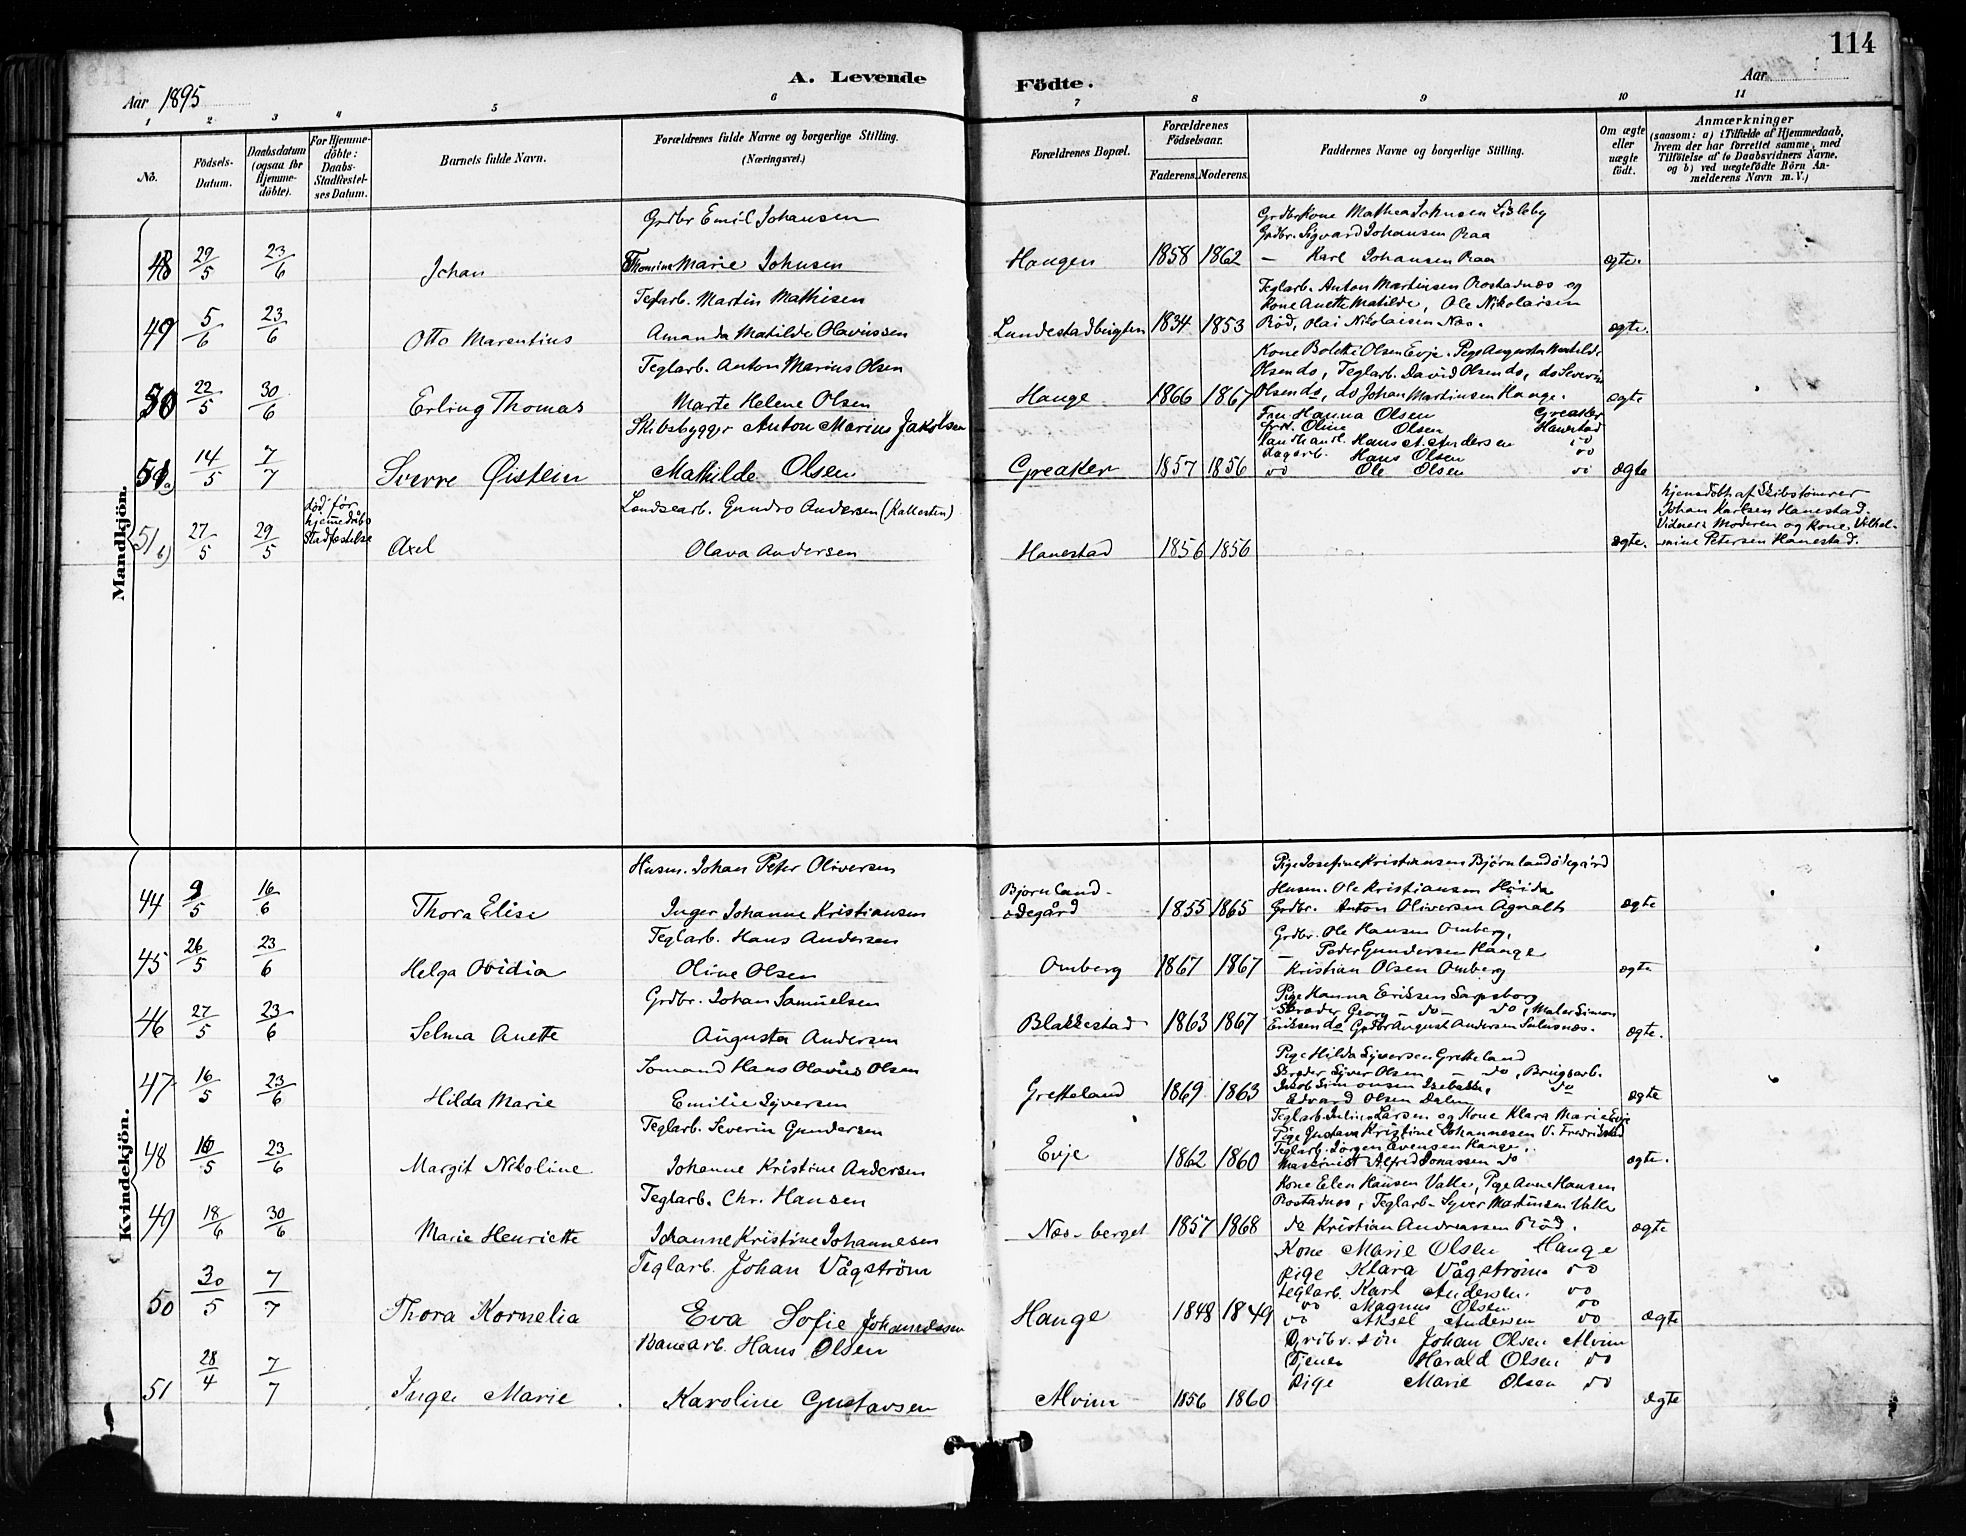 114
A. Levende Födte.
Aar 1895
Aar
1 2 3 4 5 6 7 8 9 10 11
No.
Födsels-Datum.
Daabsdatum (ogsaa for Hjemme-döbte).
For Hjemme-döbte: Daabs-Stadfæstel-ses Datum.
Barnets fulde Navn.
Forældrenes fulde Navne og borgerlige Stilling. (Næringsvei.)
Forældrenes Bopæl.
Forældrenes Födselsaar.
Faderens. Moderens.
Faddernes Navne og borgerlige Stilling.
Om ægte eller uægte födt.
Anmærkninger
(saasom: a) i Tilfælde af Hjemmedaab, hvem der har forrettet samme, med Tilföielse af to Daabsvidners Navne, og b) ved uægtefödte Börn Anmelderens Navn m. V.)
Mandkjön.
48 29/5 23/6 Johan
Grdbr Emil Johansen
Thomine Marie Johnsen
Haugen 1858 1862
Grdbr Kone Mathea Johnsen Lisleby
Grdbr. Sigvard Johansen Raa
— Karl Johansen Raa
ægte.
49 5/6 23/6 Otto Marentius
Teglarb. Martin Mathisen
Amanda Matilde Olavussen
Lundestadbugten 1834 1853
Teglarb. Anton Martinsen Rostadnæs og
Kone Anette Matilde, Ole Nikolaisen
Röd, Olai Nikolaisen Næs.
ægte.
50 22/5 30/6 Erling Thomas
Teglarb. Anton Marius Olsen
Marte Helene Olsen
Hauge 1866 1867
Kone Bolette Olsen Evje. Pige Augusta Matilde
Olsen do, Teglarb. David Olsen do, do Severin
Olsen do, do Johan Martinsen Hauge.
ægte
51 a) 14/5 7/7 Sverre Øistein
Skibsbygger Anton Marius Jakobsen
Mathilde Olsen
Greaker 1857 1856
Fru Hanna Olsen Greaker
Frk. Oline Olsen Hanestad
Landhandl. Hans A. Andersen do
Dagarb. Hans Olsen do
do Ole Olsen do
ægte
51 b) 27/5 29/5 död før hjemmedåbs Stadfæstelse Axel
Landsearb. Gundro Andersen (Kallesten)
Olava Andersen
Hanestad 1856 1856
ægte.
hjemdöbt af Skibstömrer
Johan Karlsen Hanestad.
Vidner: Moderen og Kone Vilhel-
mine Petersen Hanestad.
Kvindekjön.
44 9/5 16/6 Thora Elise
Husm. Johan Peter Oliversen
Inger Johanne Kristiansen
Bjørnland-
ødegård 1855 1865
Pige Josefine Kristiansen Bjørnlandødegård
Husm. Ole Kristiansen Hüida
Grdbr. Anton Oliversen Agnalt
ægte
45 26/5 23/6 Helga Ovidia
Teglarb. Hans Andersen
Oline Olsen
Omberg 1867 1867
Grdbr. Ole Hansen Omberg,
— Peder Gundersen Hauge
Kristian Olsen Omberg
ægte
46 27/5 23/6 Selma Anette
Grdbr. Johan Samuelsen
Augusta Andersen
Blakkestad 1863 1867
Pige Hanna Eriksen Sarpsborg
Skræder Georg — do — do, Maler Simon
Eriksen do Grdbr August Andersen
ægte.
47 16/5 23/6 Hilda Marie
Sömand Hans Olavus Olsen
Emilie Syversen
Gretteland 1869 1863
Pige Hilda Syversen Gretteland
Skræder Syver Olsen — do, Brugsarb.
Jacob Simonsen Isebakke, do
Edvard Olsen Dalen
ægte
48 10/5 23/6 Margit Nikoline
Teglarb. Severin Gundersen
Johanne Kristine Andersen
Evje 1862 1860
Teglarb. Julius Larsen og Kone Klara Marie Evje
Pige Gustava Kristine Johannesen V. Fredrikstad
Teglarb. Jörgen Evensen Hauge,
Maskinist Alfred Jonassen do
ægte.
49 18/6 30/6 Marie Henriette
Teglarb. Chr. Hansen
Johanne Kristine Johannesen
Næs-berget 1857 1868
Kone Elen Hansen Valle, Pige Anne Hansen
Rostadnæs, Teglarb. Syver Martinsen Valle
do Kristian Andreassen Röd.
ægte
50 30/5 7/7 Thora Kornelia
Teglarb. Johan Vågström
Eva Sofie Johannessen
Hauge 1848 1849
Kone Marie Olsen Hauge
Pige Klara Vågström do
Teglarb. Karl Andersen do
do Magnus Olsen do
do Aksel Andersen do
ægte
51 28/4 7/7 Inga Marie
Banearb. Hans Olsen
Karoline Gustavsen
Alvim 1856 1860
Grdbr. sön Johan Olsen Alvim
Tjener Harald Olsen do
Pige Marie Olsen do
ægte